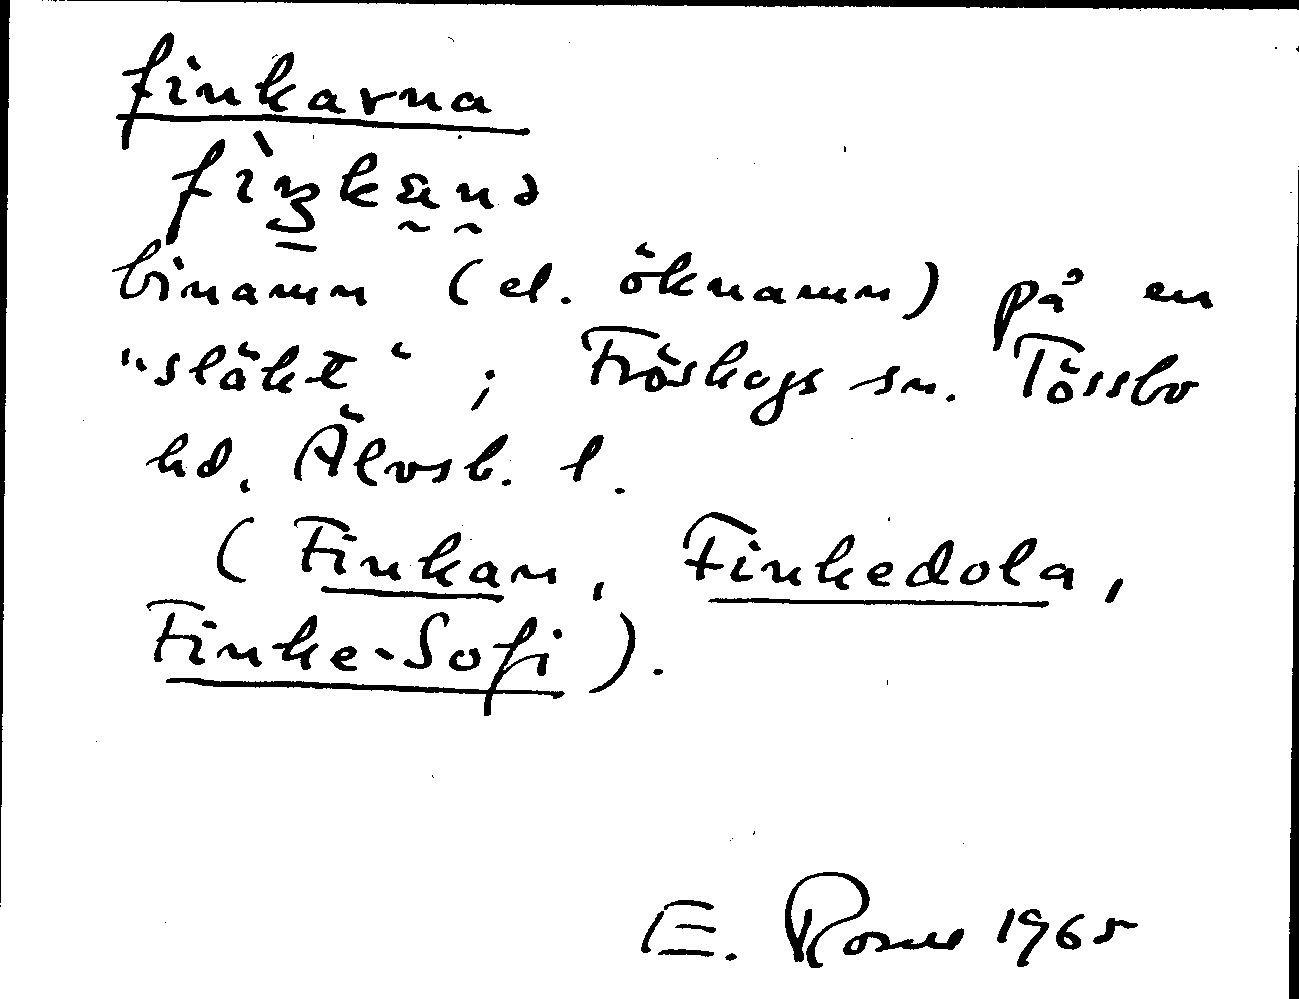 finkarna
binamn (el. öknamn) på en
"släkt"; Fröskogs sn. Tössbo
hd. Älvsb. l.
(Finkan, Finkedola,
Finke-Sofi).
E. 1965